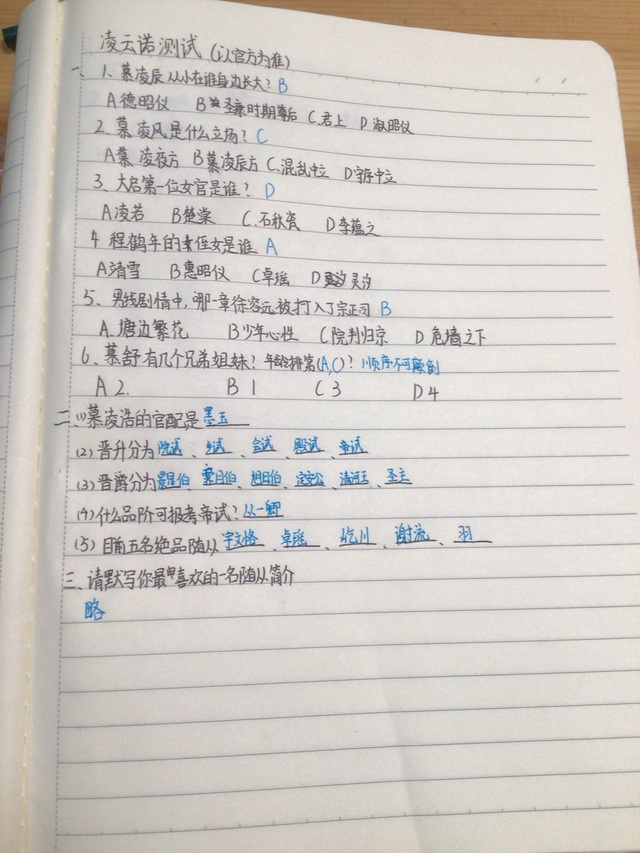 凌云诺测试(以官方为准)
一、1. 慕凌辰从小在谁身边长大? B
A 德昭仪 B 圣康时期事后 C.君上 D 淑昭仪
2. 慕凌风是什么立场? C
A慕凌夜方 B慕凌辰方 C.混乱中立 D守序中立
3、大启第一位女官是谁? D
A凌若 B楚棠 C.石秋瓷 D李蕴之
4 程鹤年的侄女是谁 A
A清雪 B惠昭仪 C卓瑶 D灵汐
5、男线剧情中,哪一章徐容远被打入了宗正司 B
A.塘边繁花 B少年心性 C院判归京 D危墙之下
6、慕舒有几个兄弟姐妹?年龄排第(A,C)?顺序不可颠倒
A 2. B 1 C 3 D 4
二、(1)慕凌浩的官配是墨玉
(2)晋升分为院试、乡试、会试、殿试、帝试
(3)晋爵分为景星伯、霁月伯、旭日伯、定安公、清河王、圣主
(4)什么品阶可报考帝试?从一卿
(5)目前五名绝品随从宇文恪、卓瑶、屹川、谢流、羽
三、请默写你最喜欢的一名随从简介
略